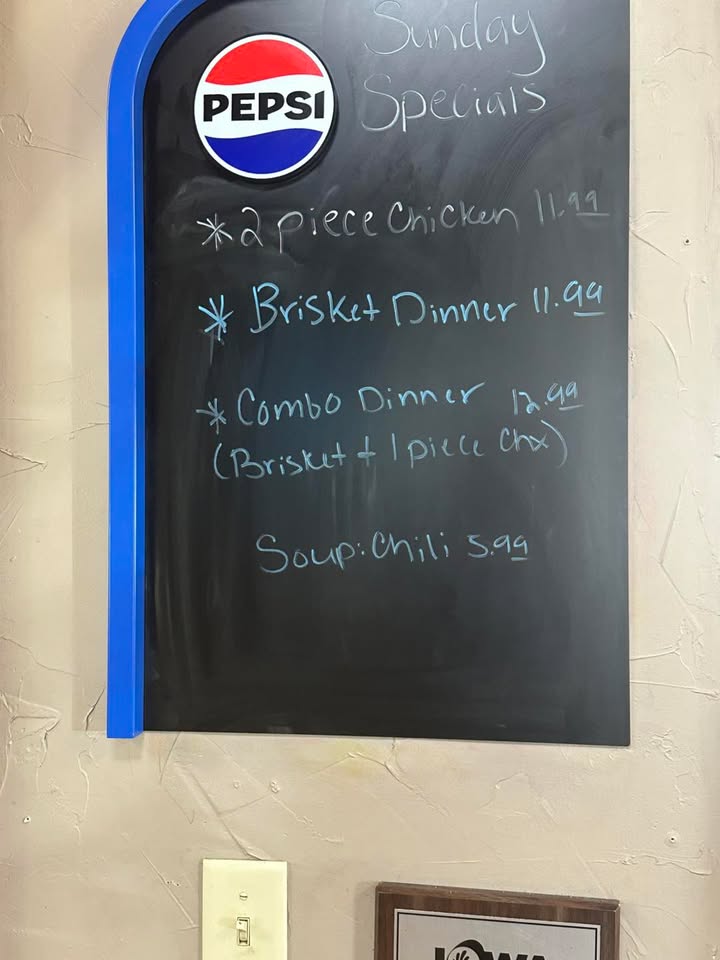 Sunday
Specials
PEPSI
* 2 piece Chicken 11.99
* Brisket Dinner 11.99
* Combo Dinner 12.99
(Brisket + 1 piece Chx)
Soup: Chili 5.99
IOWA